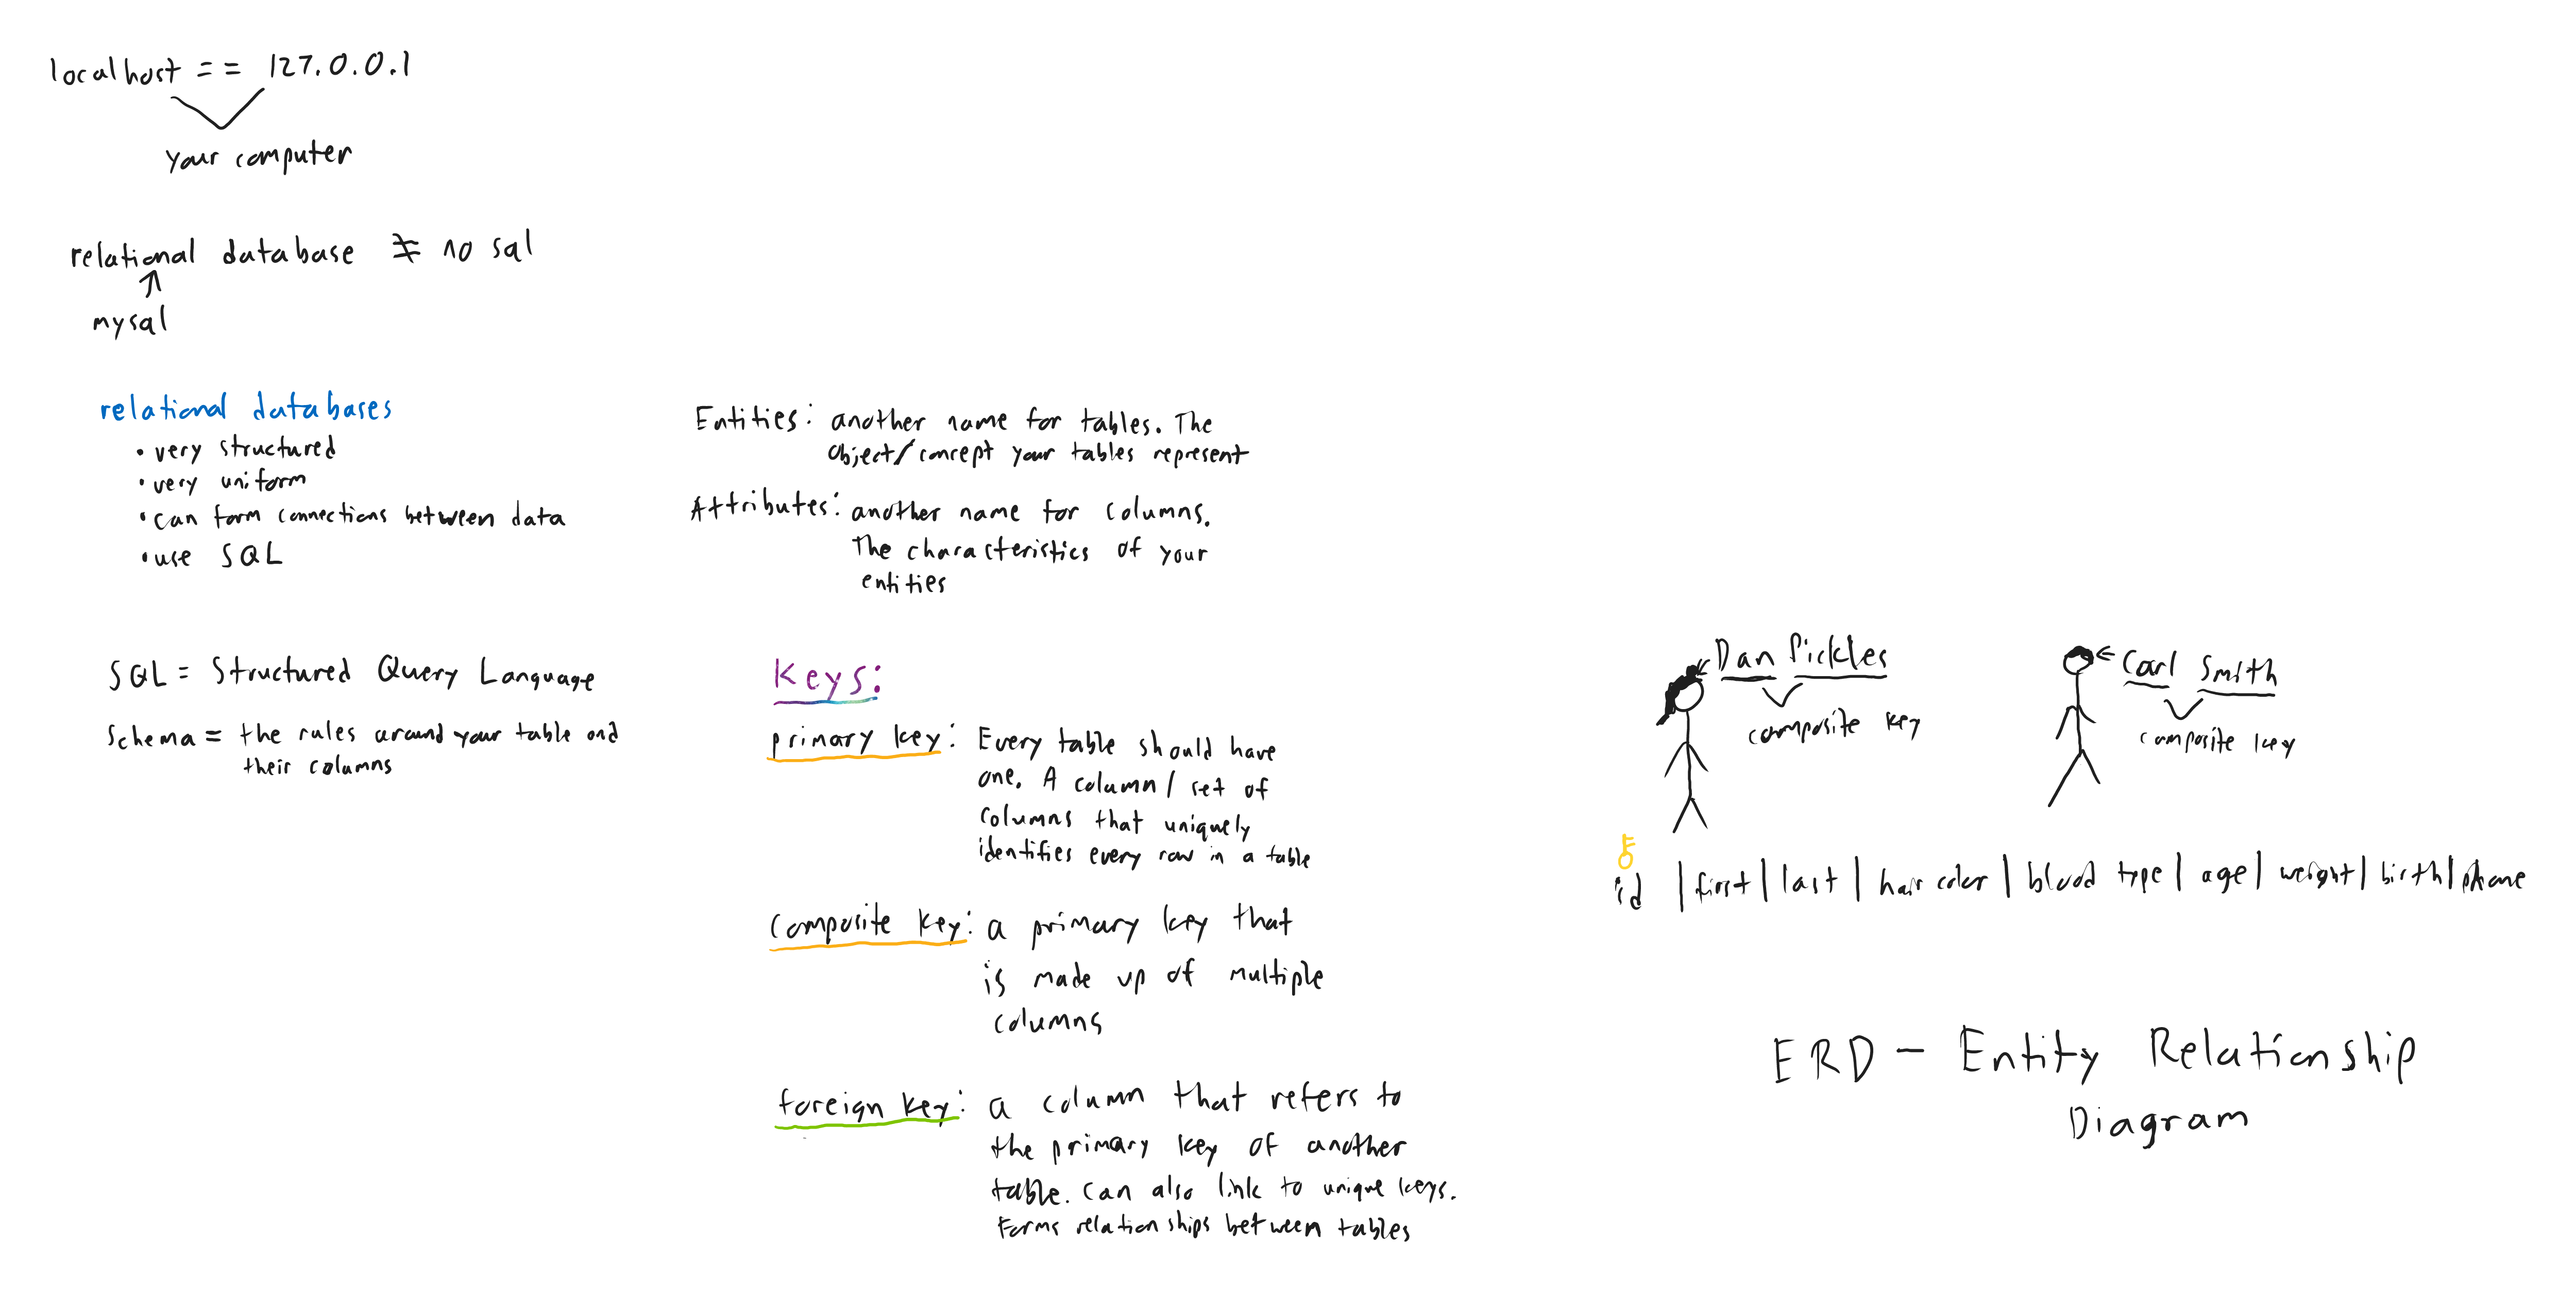 localhost == 127.0.0.1
your computer
relational database ≠ no sql
mysql
relational databases
• very structured
• very uniform
• can form connections between data
• use SQL
SQL = Structured Query Language
Schema = the rules around your table and
their columns
Entities: another name for tables. The
object/concept your tables represent
Attributes: another name for columns.
The characteristics of your
entities
Keys:
primary key: Every table should have
one. A column/set of
columns that uniquely
identifies every row in a table
Composite key: a primary key that
is made up of multiple
columns
foreign key: a column that refers to
the primary key of another
table. Can also link to unique keys.
Forms relationships between tables
Dan Pickles
composite key
Carl Smith
composite key
id | first | last | hair color | blood type | age | weight | birth | phone
ERD - Entity Relationship
Diagram